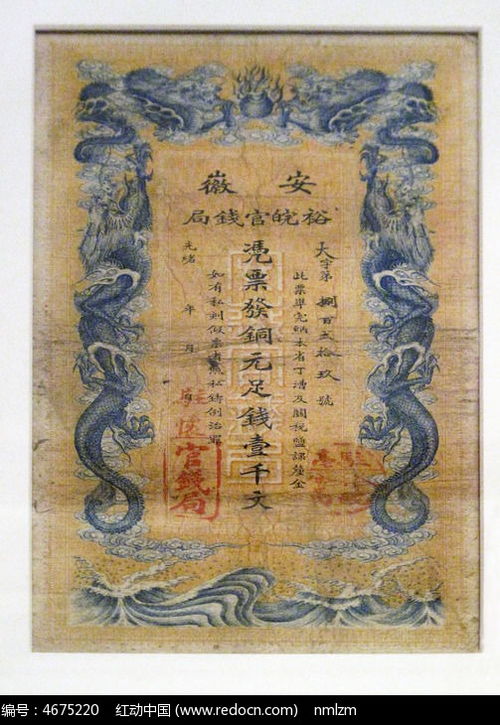 安徽
裕皖官錢局
大字第捌百弍拾玖號
此票準完納本省丁漕及關稅鹽課釐金
憑票發銅元足錢壹千文
如有私刻假票者照私鑄例治罪
光緒 年 月 日
官錢局
编号：4675220 红动中国 (www.redocn.com) nmlzm